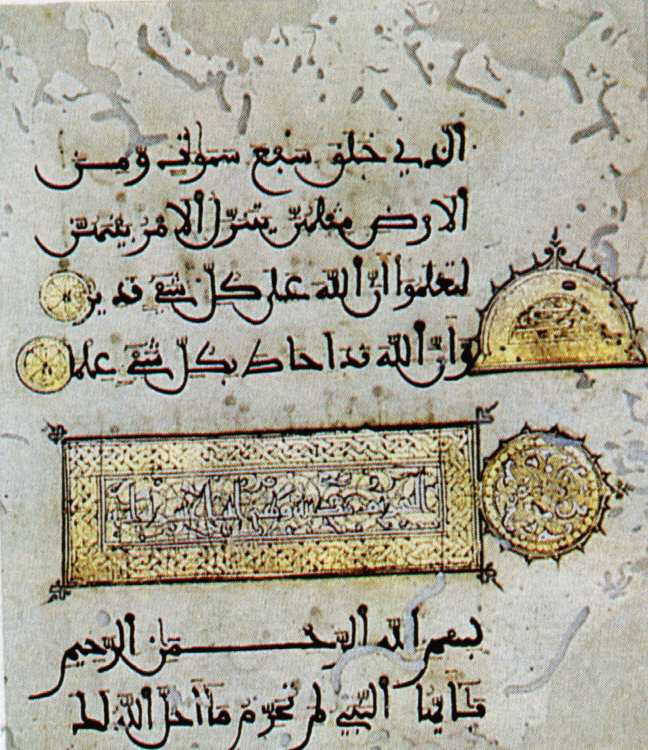 الذي خلق سبع سموات ومن
الارض مثلهن يتنزل الامر بينهن
لتعلموا أن الله على كل شي قدير
وأن الله قد احاط بكل شي علما
بسم الله الرحمن الرحيم
يايها النبي لم تحرم ما أحل الله لك